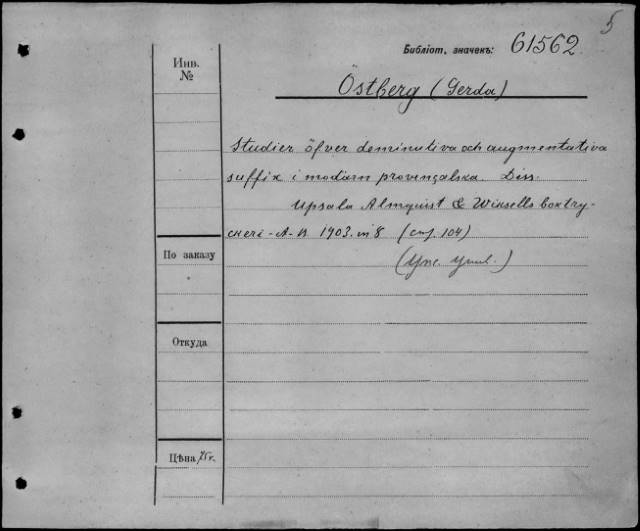 5
Библіот. значекъ: 61562
Инв.
№
Östberg (Gerda)
Studier öfver deminutiva och augmentativa
suffix i modärn provençalska. Diss.
Upsala Almquist & Wiksells boktry-
ckeri-A-B 1903. in 8 (стр. 104)
По заказу
Откуда
Цѣна